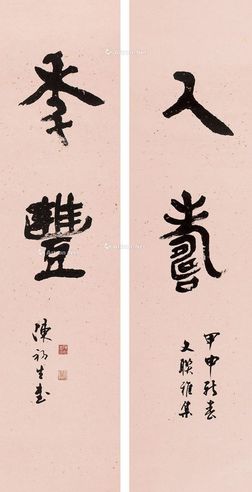 人壽
甲申新春
文聯雅集
年豐
陳初生書